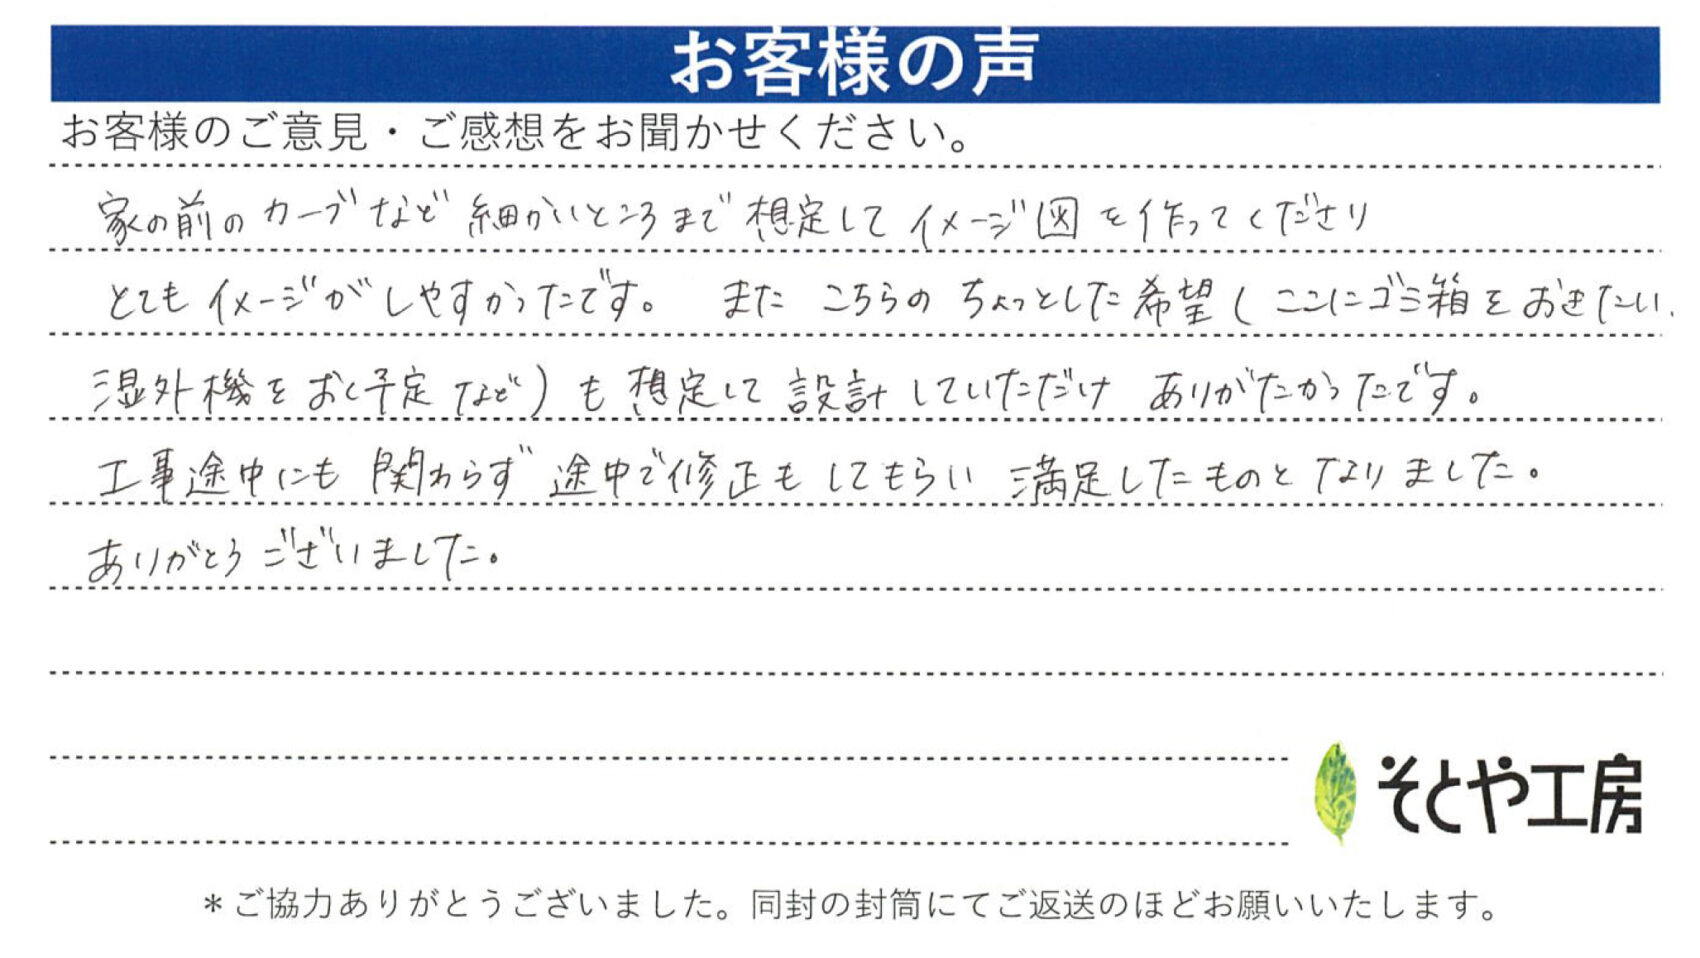 お客様の声
お客様のご意見・ご感想をお聞かせください。
家の前のカーブなど細かいところまで想定してイメージ図を作ってくださり
とてもイメージがしやすかったです。 また こちらの ちょっとした希望(ここにゴミ箱をおきたい、
湿外機をおく予定など)も想定して設計していただけ ありがたかったです。
工事途中にも関わらず途中で修正もしてもらい 満足したものとなりました。
ありがとうございました。
そとや工房
＊ご協力ありがとうございました。同封の封筒にてご返送のほどお願いいたします。